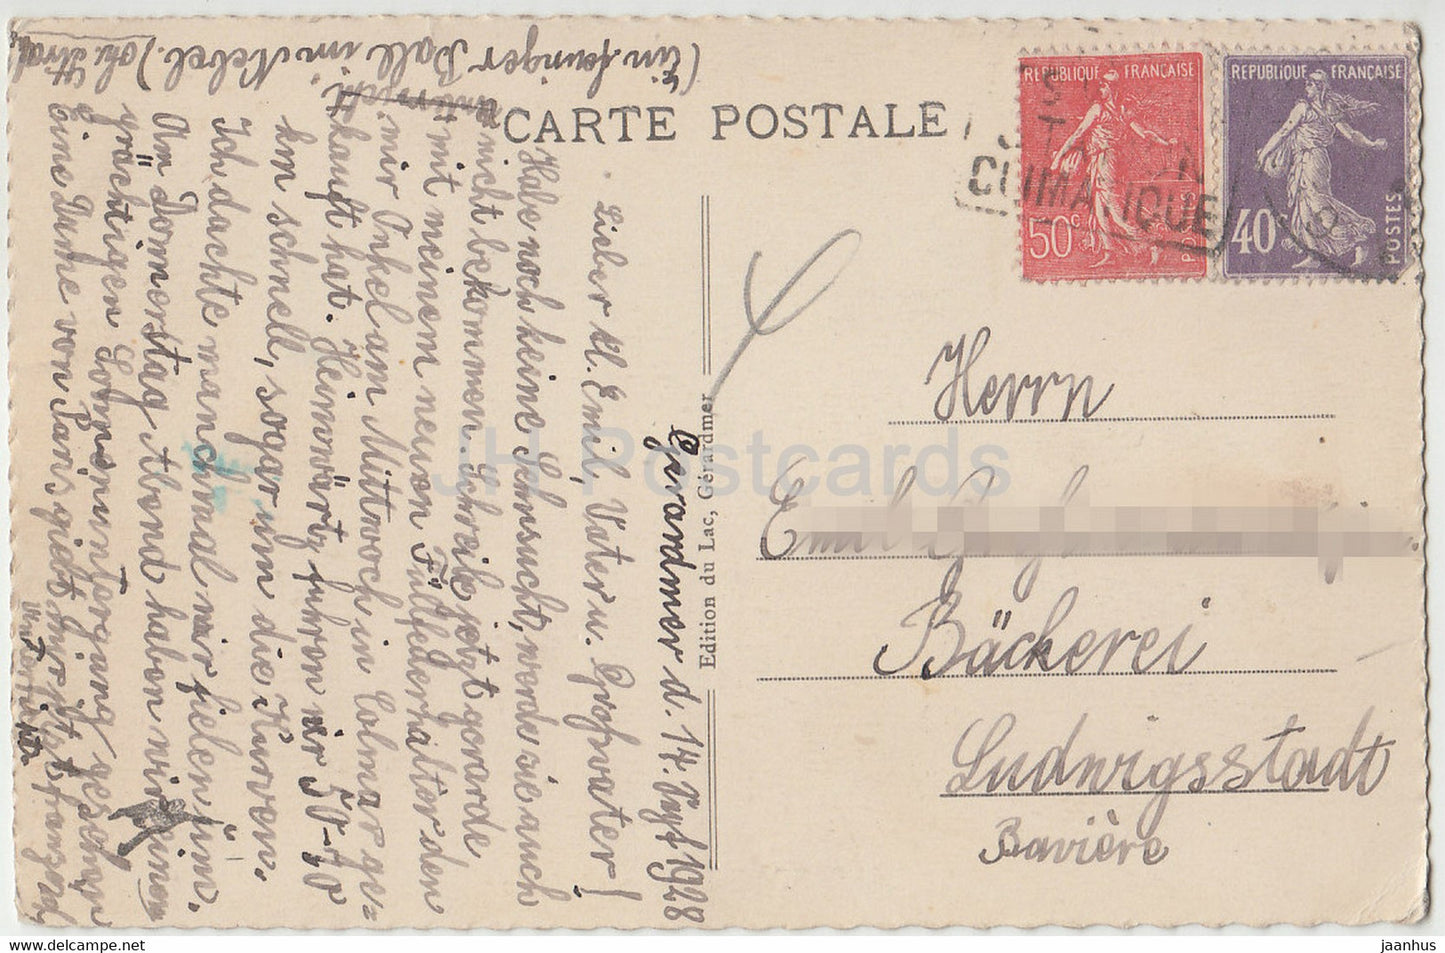 CARTE POSTALE
REPUBLIQUE FRANÇAISE
50c
POSTES
REPUBLIQUE FRANÇAISE
40
POSTES
CLIMATIQUE
Edition du Lac, Gérardmer
Gerardmer d. 14. 1928
Lieber Emil, Vater u. Großvater!
Habe noch keine Sehnsucht, werde sie auch
nicht bekommen. Schreib jetzt gerade
mit meinem neuen Füllfederhalter den
mir Onkel am Mittwoch in Colmar ge=
kauft hat. Heimwärts fuhren wir 50-70
km schnell, sogar um die Kurven.
Ich dachte manchmal wir fielen um.
Am Donnerstag Abend haben wir einen
prächtigen Sonnenuntergang gesehen
Eine Dame von Paris giebt mir jetzt französ.
Unterricht.
(Ein feuriger Ball im Nebel.)
Herrn
Emil
Bäckerei
Ludwigsstadt
Bavière
JH Postcards
www.delcampe.net
jaanhus